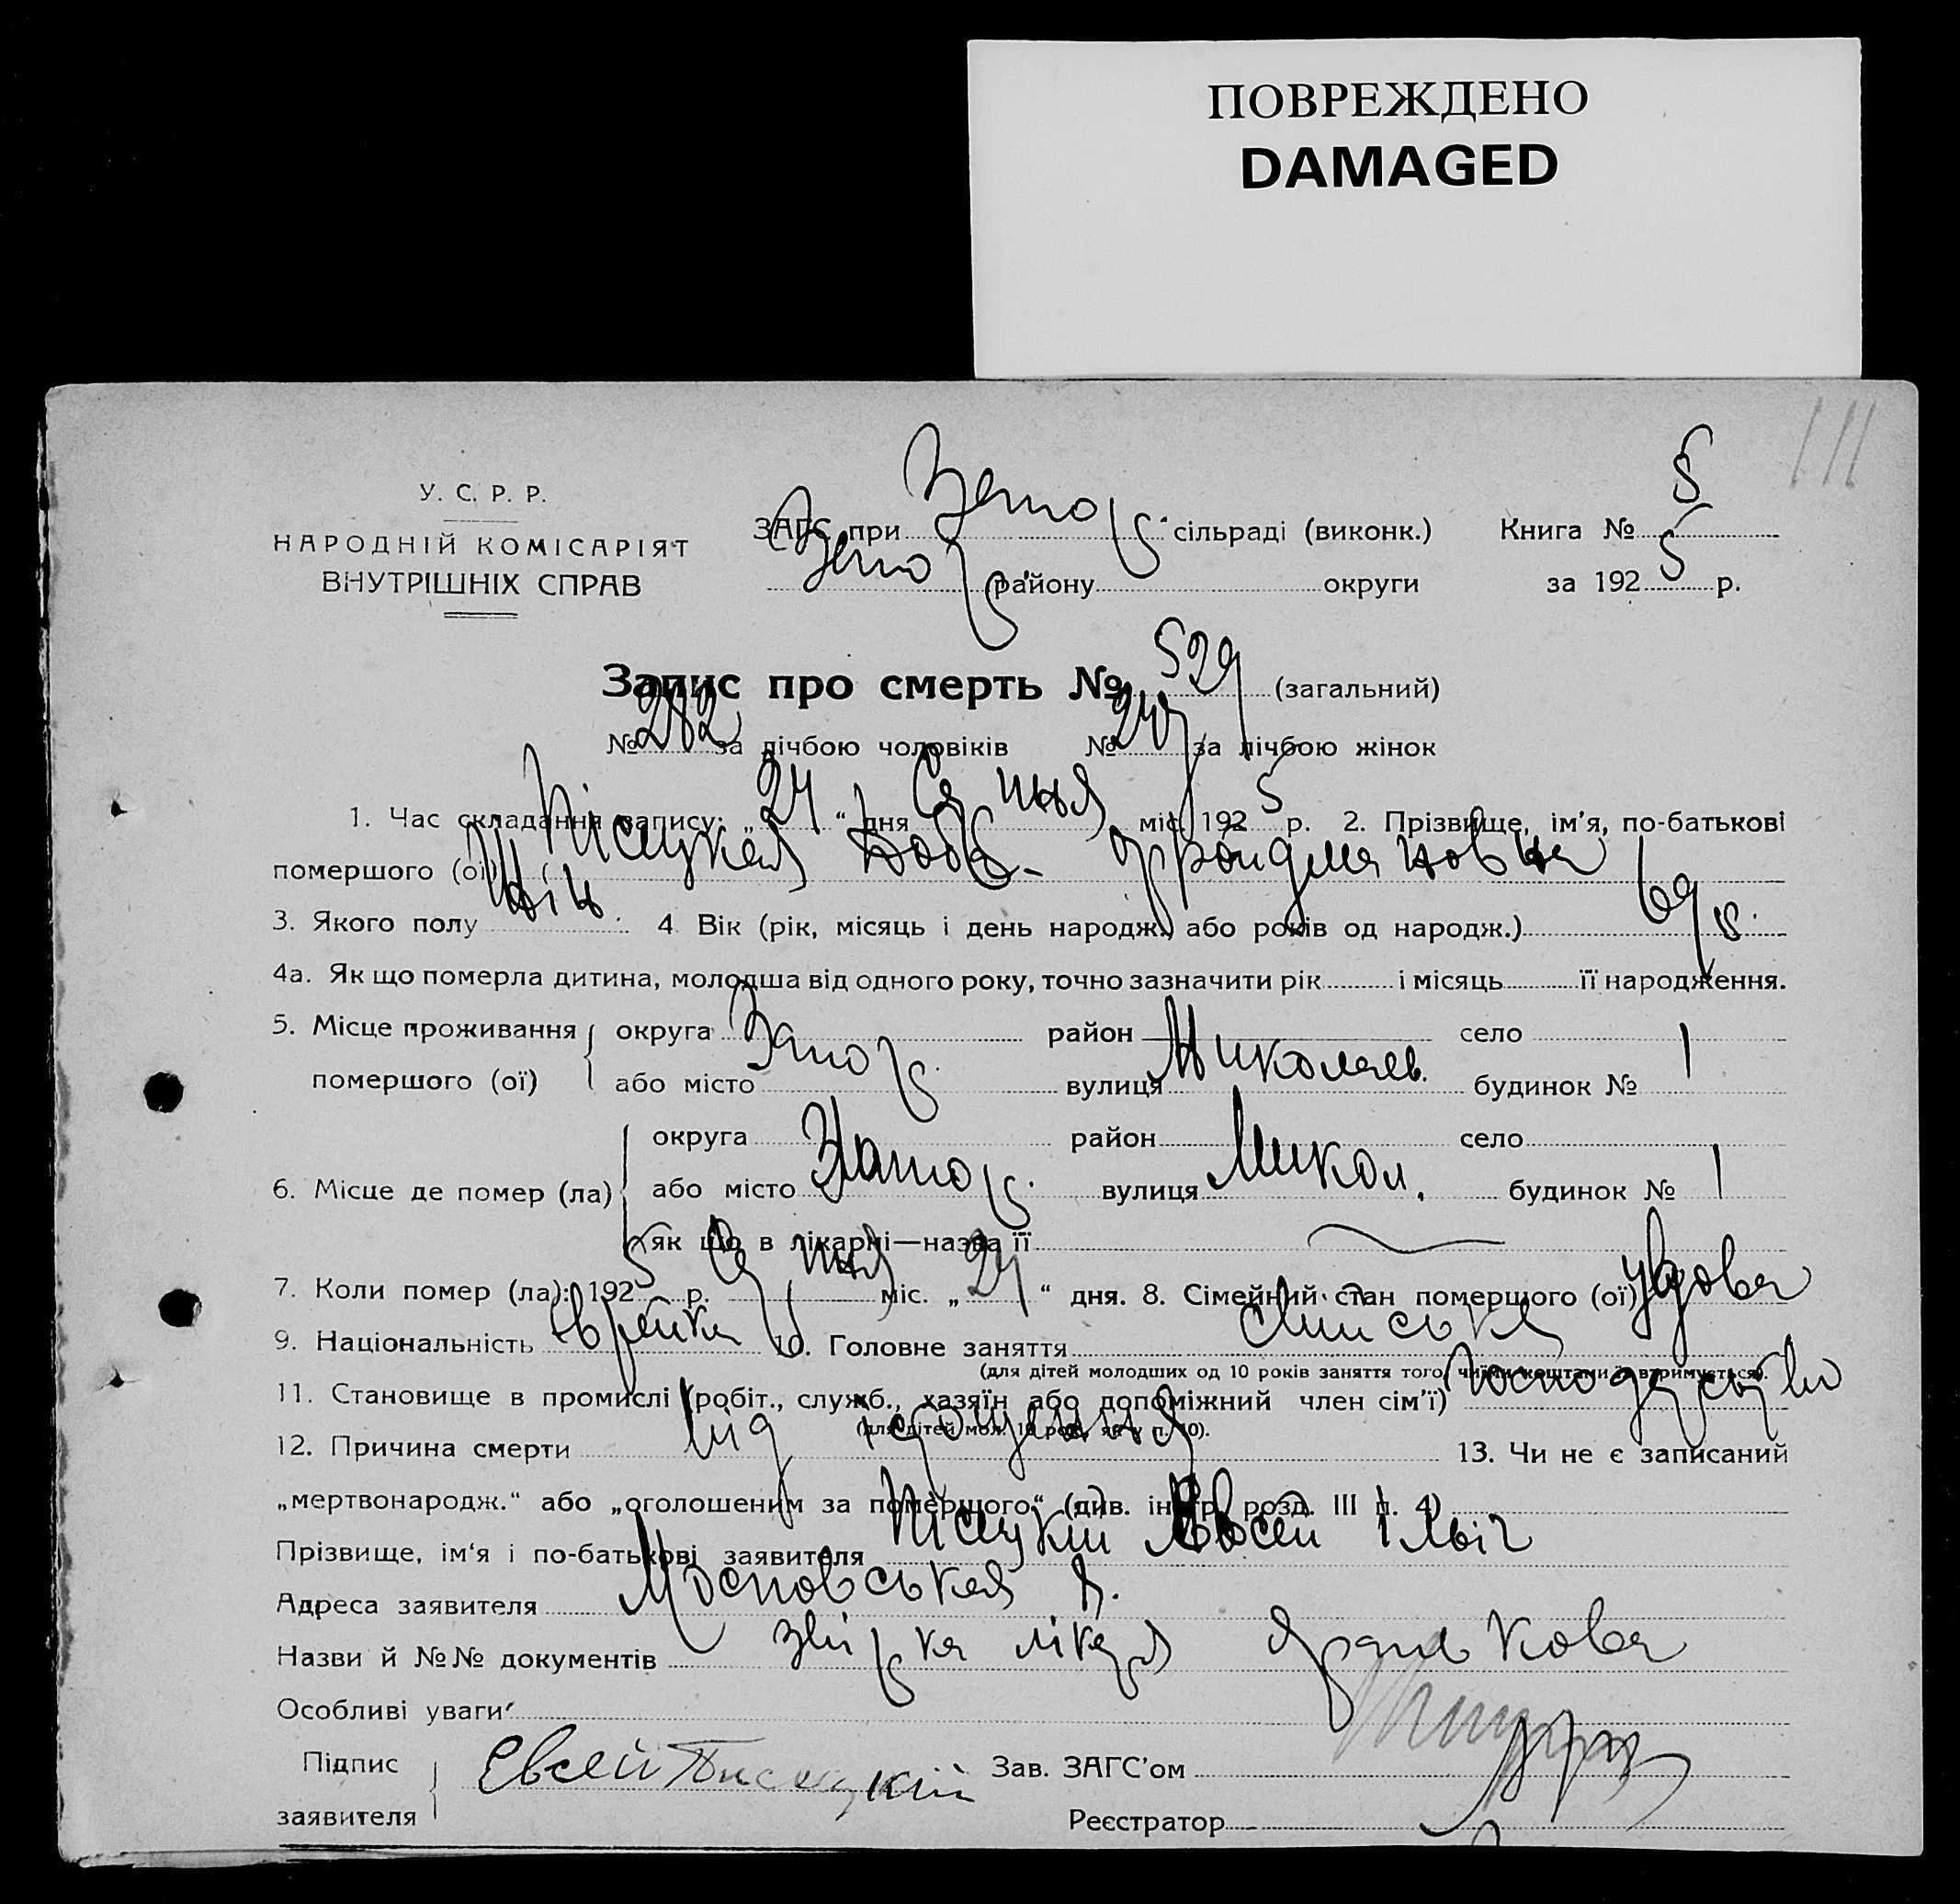 ПОВРЕЖДЕНО
DAMAGED
111
У. С. Р. Р.
НАРОДНІЙ КОМІСАРІЯТ
ВНУТРІШНІХ СПРАВ
ЗАГС при Запоріз. сільраді (виконк.) Книга № 5
Запоріз. району округи за 1925 р.
Запис про смерть № 529 (загальний)
№ 282 за лічбою чоловіків № 247 за лічбою жінок
1. Час складання запису: „24“ дня Серпня міс. 1925 р. 2. Прізвище, ім’я, по-батькові
помершого (ої) Пісецкая Фрайдмановна
3. Якого полу Жін. 4 Вік (рік, місяць і день народж., або років од народж.) 69 р.
4а. Як що померла дитина, молодша від одного року, точно зазначити рік і місяць її народження.
5. Місце проживання помершого (ої) округа Запоріз. район село
або місто вулиця Николаев. будинок № 1
6. Місце де помер (ла) округа район село
або місто Запоріз. вулиця Микол. будинок № 1
як що в лікарні—назва її
7. Коли помер (ла): 1925 р. Серпня міс. „24“ дня. 8. Сімейний стан помершого (ої) удова
9. Національність Єврейка 10. Головне заняття
(для дітей молодших од 10 років заняття того, чиїми коштами їх втримується).
11. Становище в промислі (робіт., служб., хазяїн або допоміжний член сім’ї) господарство
(для дітей мол. 10 рок. як у п. 10).
12. Причина смерти від 13. Чи не є записаний
„мертвонародж.“ або „оголошеним за помершого“ (див. інстр. розд. III п. 4)
Прізвище, ім‘я і по-батькові заявителя Пісецкій Євсей Ільіч
Адреса заявителя Московськая 8.
Назви й №№ документів лікаря
Особливі уваги
Підпис заявителя Евсей Писецкій Зав. ЗАГС’ом
Реєстратор